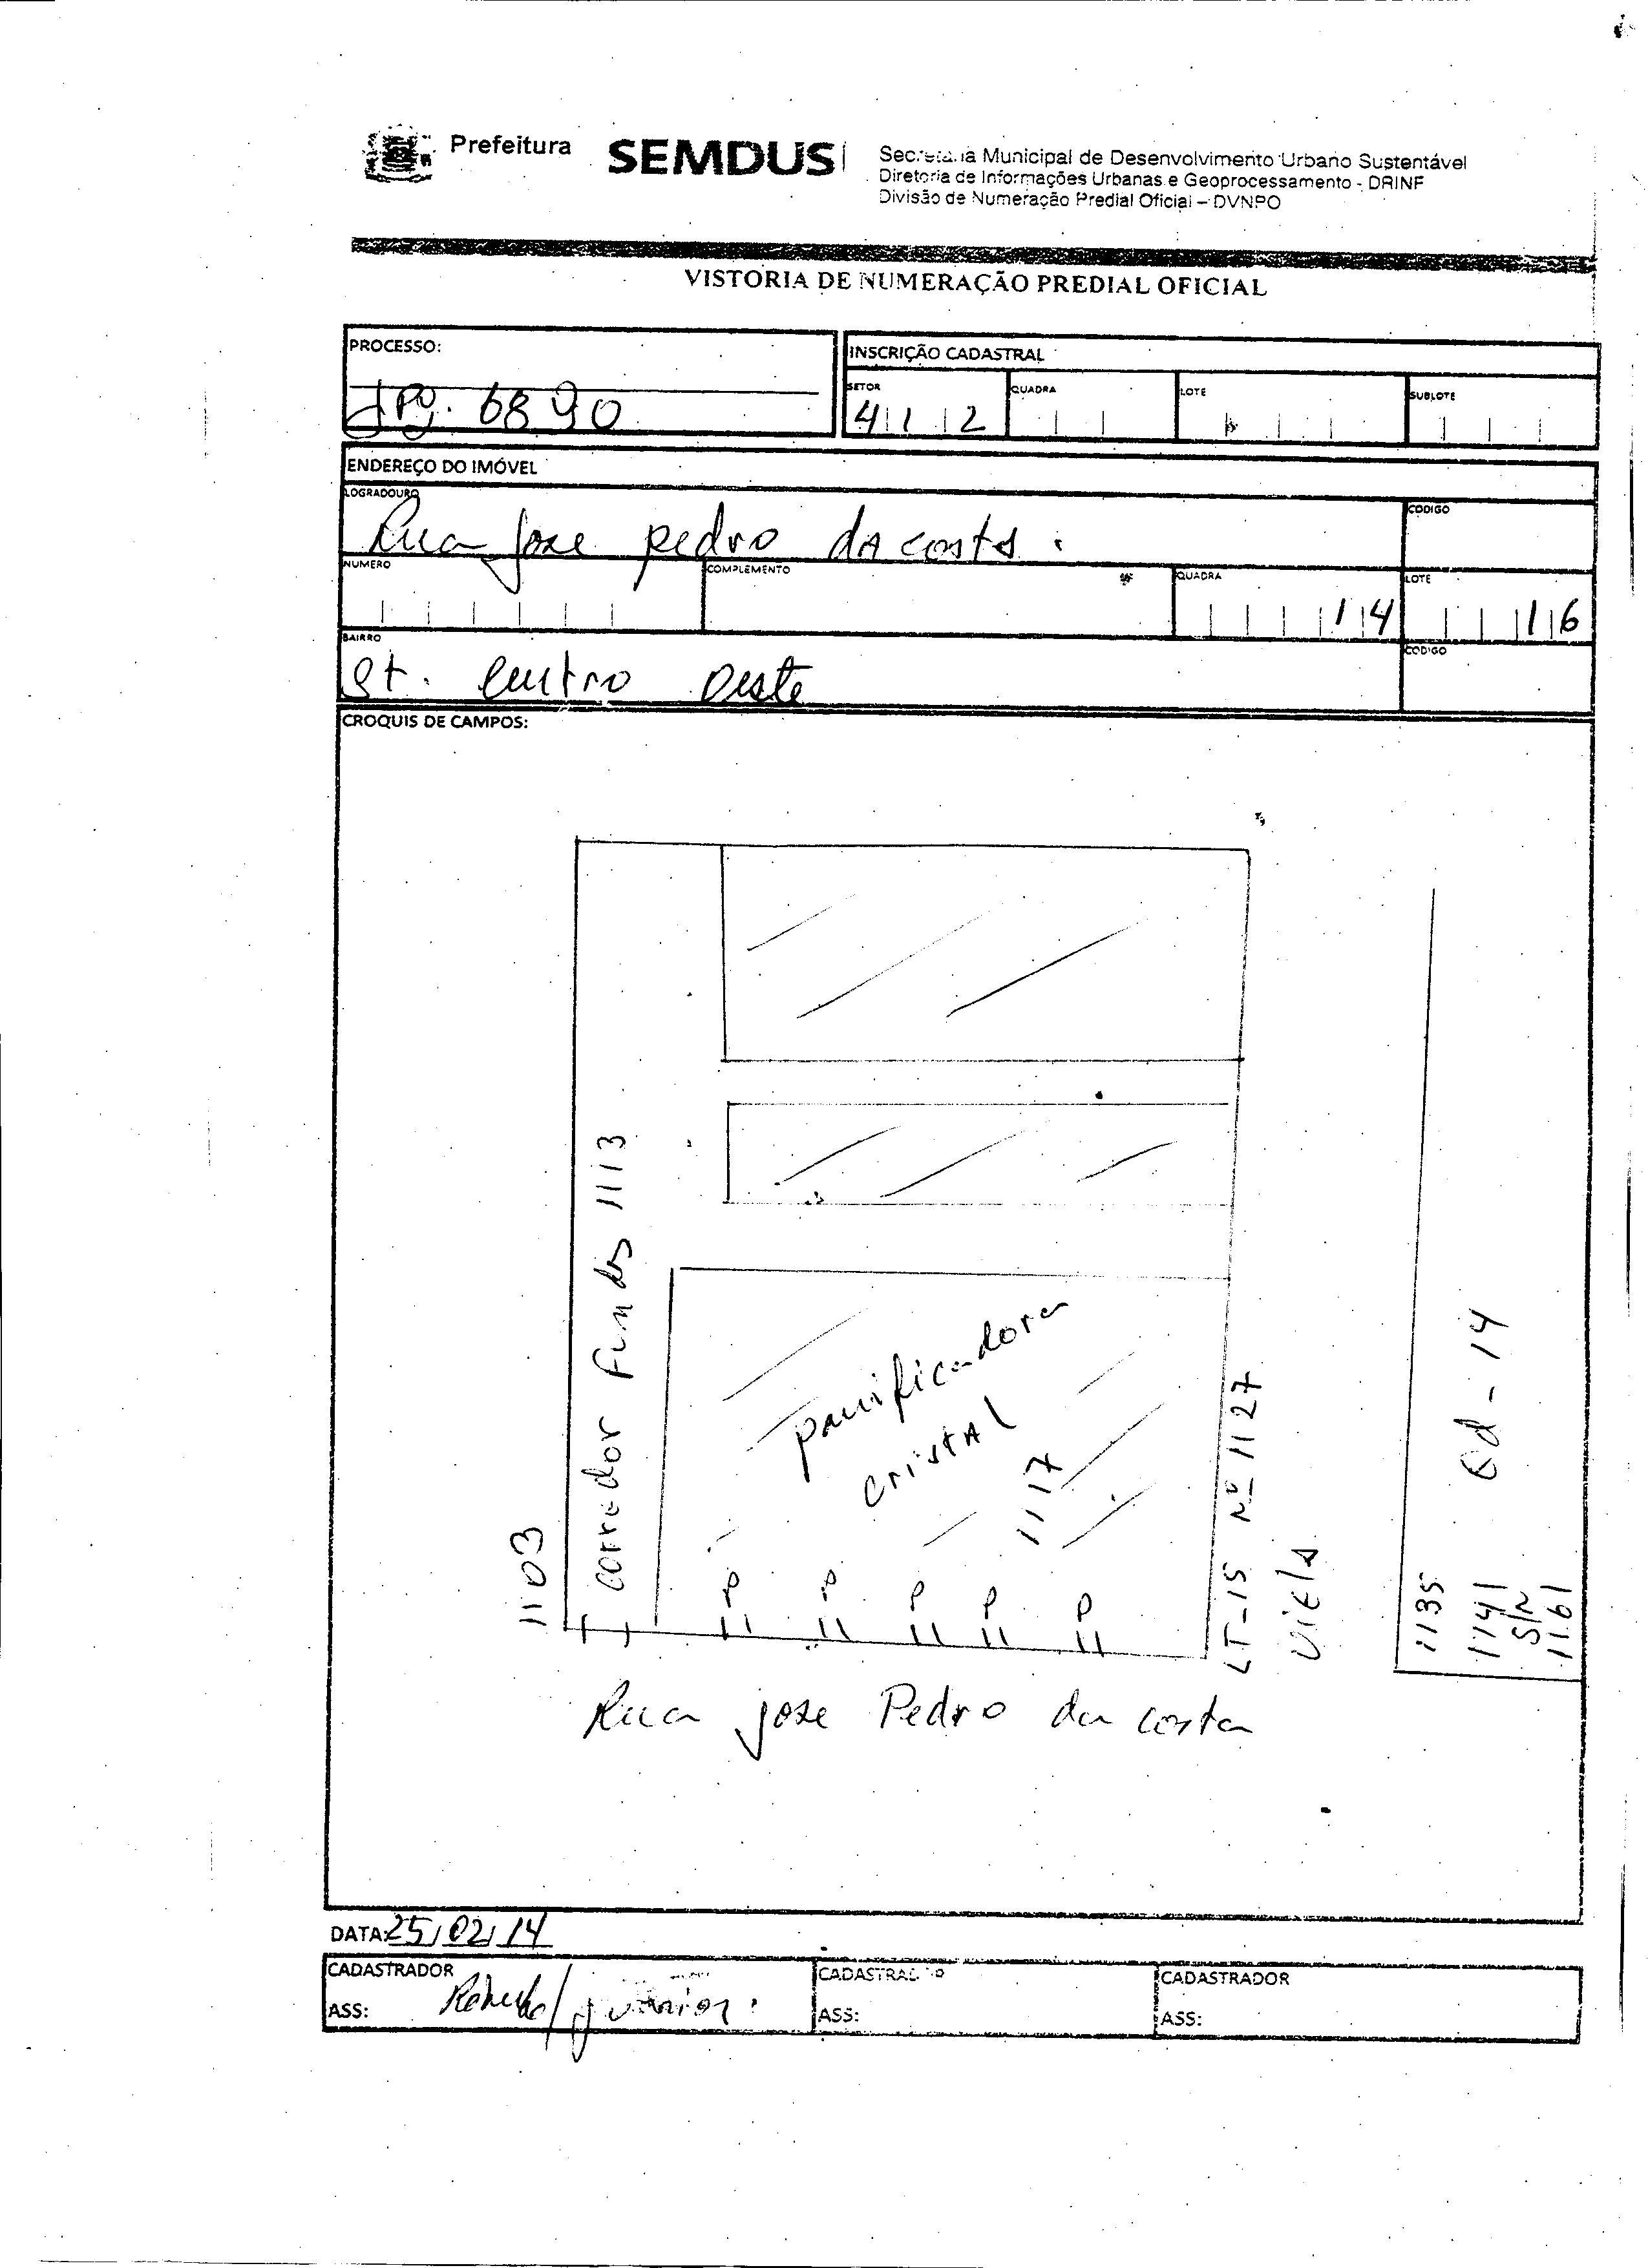 Prefeitura SEMDUS
Municipal de Desenvolvimento Urbano Sustentável
Diretoria de Informações Urbanas e Geoprocessamento - DRINF
Divisão de Numeração Predial Oficial – DVNPO
VISTORIA DE NUMERAÇÃO PREDIAL OFICIAL
PROCESSO:
6890
INSCRIÇÃO CADASTRAL
SETOR QUADRA LOTE SUBLOTE
412
ENDEREÇO DO IMÓVEL
LOGRADOURO CODIGO
Rua Jose pedro dA costA
NUMERO COMPLEMENTO QUADRA LOTE
14 16
BAIRRO CODIGO
St. Centro Oeste
CROQUIS DE CAMPOS:
1103
corredor Fundos 1113
panificadora
cristAl
1117
P P P P P
LT-15 Nº 1127
viela
1135
1141
S/N
1161
Qd - 14
Rua jose Pedro da costa
DATA: 25/02/14
CADASTRADOR CADASTRADOR CADASTRADOR
ASS: ASS: ASS: